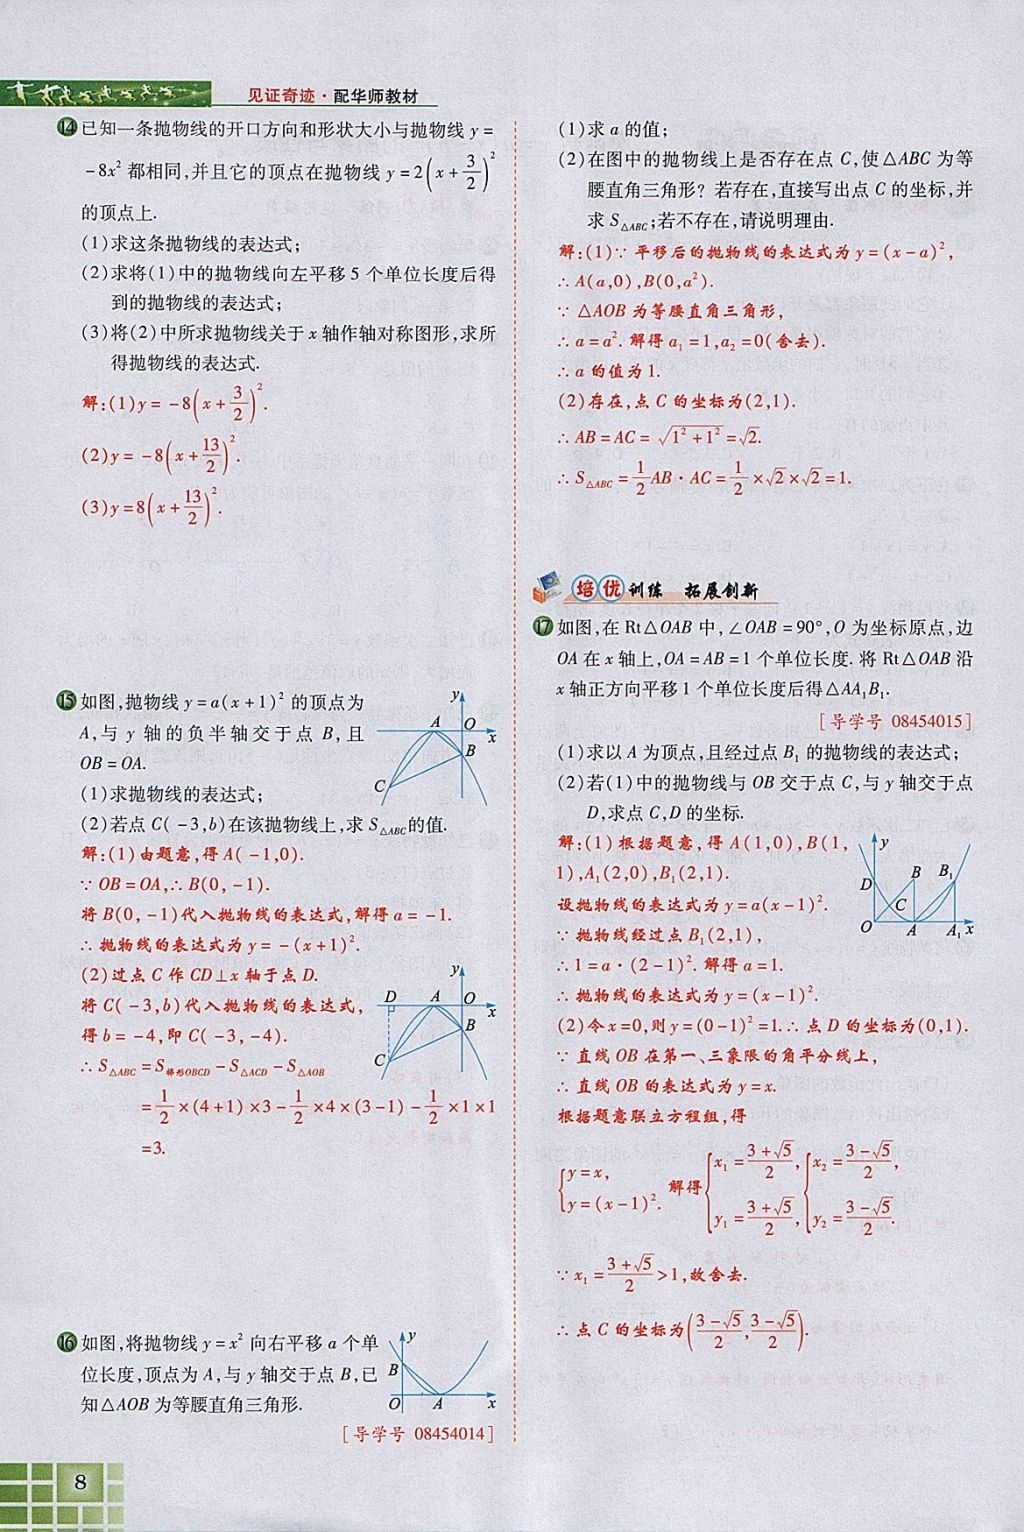 见证奇迹·配华师教材
14 已知一条抛物线的开口方向和形状大小与抛物线 y=
-8x² 都相同,并且它的顶点在抛物线 y=2(x+3/2)²
的顶点上.
(1)求这条抛物线的表达式;
(2)求将(1)中的抛物线向左平移 5 个单位长度后得
到的抛物线的表达式;
(3)将(2)中所求抛物线关于 x 轴作轴对称图形,求所
得抛物线的表达式.
解:(1)y=-8(x+3/2)².
(2)y=-8(x+13/2)².
(3)y=8(x+13/2)².
15 如图,抛物线 y=a(x+1)² 的顶点为
A,与 y 轴的负半轴交于点 B,且
OB=OA.
(1)求抛物线的表达式;
(2)若点 C(-3,b)在该抛物线上,求 S△ABC的值.
y
A
O
x
B
C
解:(1)由题意,得 A(-1,0).
∵OB=OA,∴B(0,-1).
将 B(0,-1)代入抛物线的表达式,解得 a=-1.
∴抛物线的表达式为 y=-(x+1)².
(2)过点 C 作 CD⊥x 轴于点 D.
将 C(-3,b)代入抛物线的表达式,
得 b=-4,即 C(-3,-4).
∴S△ABC=S梯形OBCD-S△ACD-S△AOB
=1/2×(4+1)×3-1/2×4×(3-1)-1/2×1×1
=3.
y
D
A
O
x
B
C
16 如图,将抛物线 y=x² 向右平移 a 个单
位长度,顶点为 A,与 y 轴交于点 B,已
知△AOB 为等腰直角三角形.
[导学号 08454014]
y
B
O
A
x
(1)求 a 的值;
(2)在图中的抛物线上是否存在点 C,使△ABC 为等
腰直角三角形?若存在,直接写出点 C 的坐标,并
求 S△ABC;若不存在,请说明理由.
解:(1)∵平移后的抛物线的表达式为 y=(x-a)²,
∴A(a,0),B(0,a²).
∵△AOB 为等腰直角三角形,
∴a=a².解得 a₁=1,a₂=0(舍去).
∴a 的值为 1.
(2)存在,点 C 的坐标为(2,1).
∴AB=AC=√(1²+1²)=√2.
∴S△ABC=1/2AB·AC=1/2×√2×√2=1.
培优训练 拓展创新
17 如图,在 Rt△OAB 中,∠OAB=90°,O 为坐标原点,边
OA 在 x 轴上,OA=AB=1 个单位长度.将 Rt△OAB 沿
x 轴正方向平移 1 个单位长度后得△AA₁B₁.
[导学号 08454015]
(1)求以 A 为顶点,且经过点 B₁ 的抛物线的表达式;
(2)若(1)中的抛物线与 OB 交于点 C,与 y 轴交于点
D,求点 C,D 的坐标.
解:(1)根据题意,得 A(1,0),B(1,
1),A₁(2,0),B₁(2,1).
设抛物线的表达式为 y=a(x-1)².
∵抛物线经过点 B₁(2,1),
∴1=a·(2-1)².解得 a=1.
∴抛物线的表达式为 y=(x-1)².
y
D
B
B₁
C
O
A
A₁
x
(2)令 x=0,则 y=(0-1)²=1.∴点 D 的坐标为(0,1).
∵直线 OB 在第一、三象限的角平分线上,
∴直线 OB 的表达式为 y=x.
根据题意联立方程组,得
{y=x, y=(x-1)². 解得 {x₁=(3+√5)/2, y₁=(3+√5)/2, {x₂=(3-√5)/2, y₂=(3-√5)/2.
∵x₁=(3+√5)/2>1,故舍去.
∴点 C 的坐标为((3-√5)/2,(3-√5)/2).
8